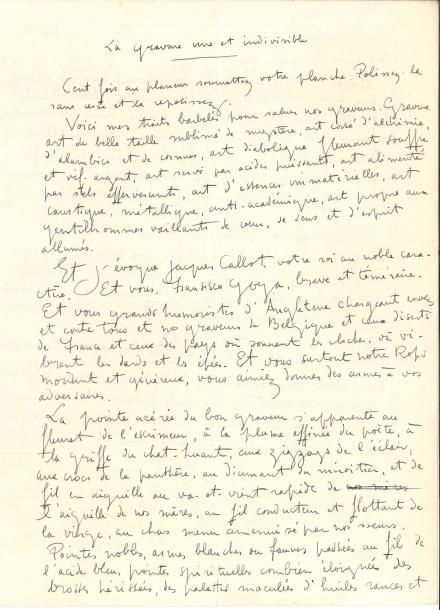 La gravure une et indivisible
Cent fois au planeur soumettez votre planche. Polissez-la
sans cesse et la repolissez.
Voici mes traits barbelés pour saluer nos graveurs. Gravure
art de belle taille sublimé de mystère, art corsé d'alchimie,
d'alambics et de cornues, art diabolique fleurant souffre
et vif-argent, art servi par acides puissants, art alimenté
par sels effervescents, art d'essences immatérielles, art
caustique, métallique, anti-académique, art propre aux
gentilhommes vaillants de cœur, de sens et d'esprit
allumés.
Et j'évoque Jacques Callot votre roi au noble cara-
ctère. Et vous, Francisco Goya, brave et téméraire.
Et vous grands humoristes d'Angleterre chargeant envers
et contre tous et nos graveurs de Belgique et ceux diserts
de France et ceux des pays où sonnent les cloches, où vi-
brent les dards et les épées. Et vous surtout notre Rops
mordant et généreux, vous aimiez donner des armes à vos
adversaires.
La pointe acérée du bon graveur s'apparente au
fleuret de l'escrimeur, à la plume effinée du poète, à
la griffe du chat-huant, aux zigzags de l'éclair,
aux crocs de la panthère, au diamant du miroitier, et de
fil en aiguille au va-et-vient rapide de nos mères
l'aiguille de nos mères, au fil conducteur et flottant de
la vierge, au chas menu amenuisé par nos soeurs.
Pointes nobles, armes blanches ou fauves passées au fil de
l'acide bleu, pointes spirituelles combien éloignées des
brosses hérissées, des palettes maculées d'huiles rances et